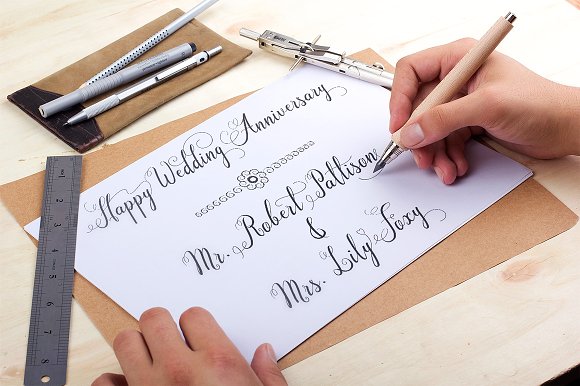 Happy Wedding Anniversary
Mr. Robert Pattison
&
Mrs. Lily Foxy
1
2
3
4
5
6
7
8